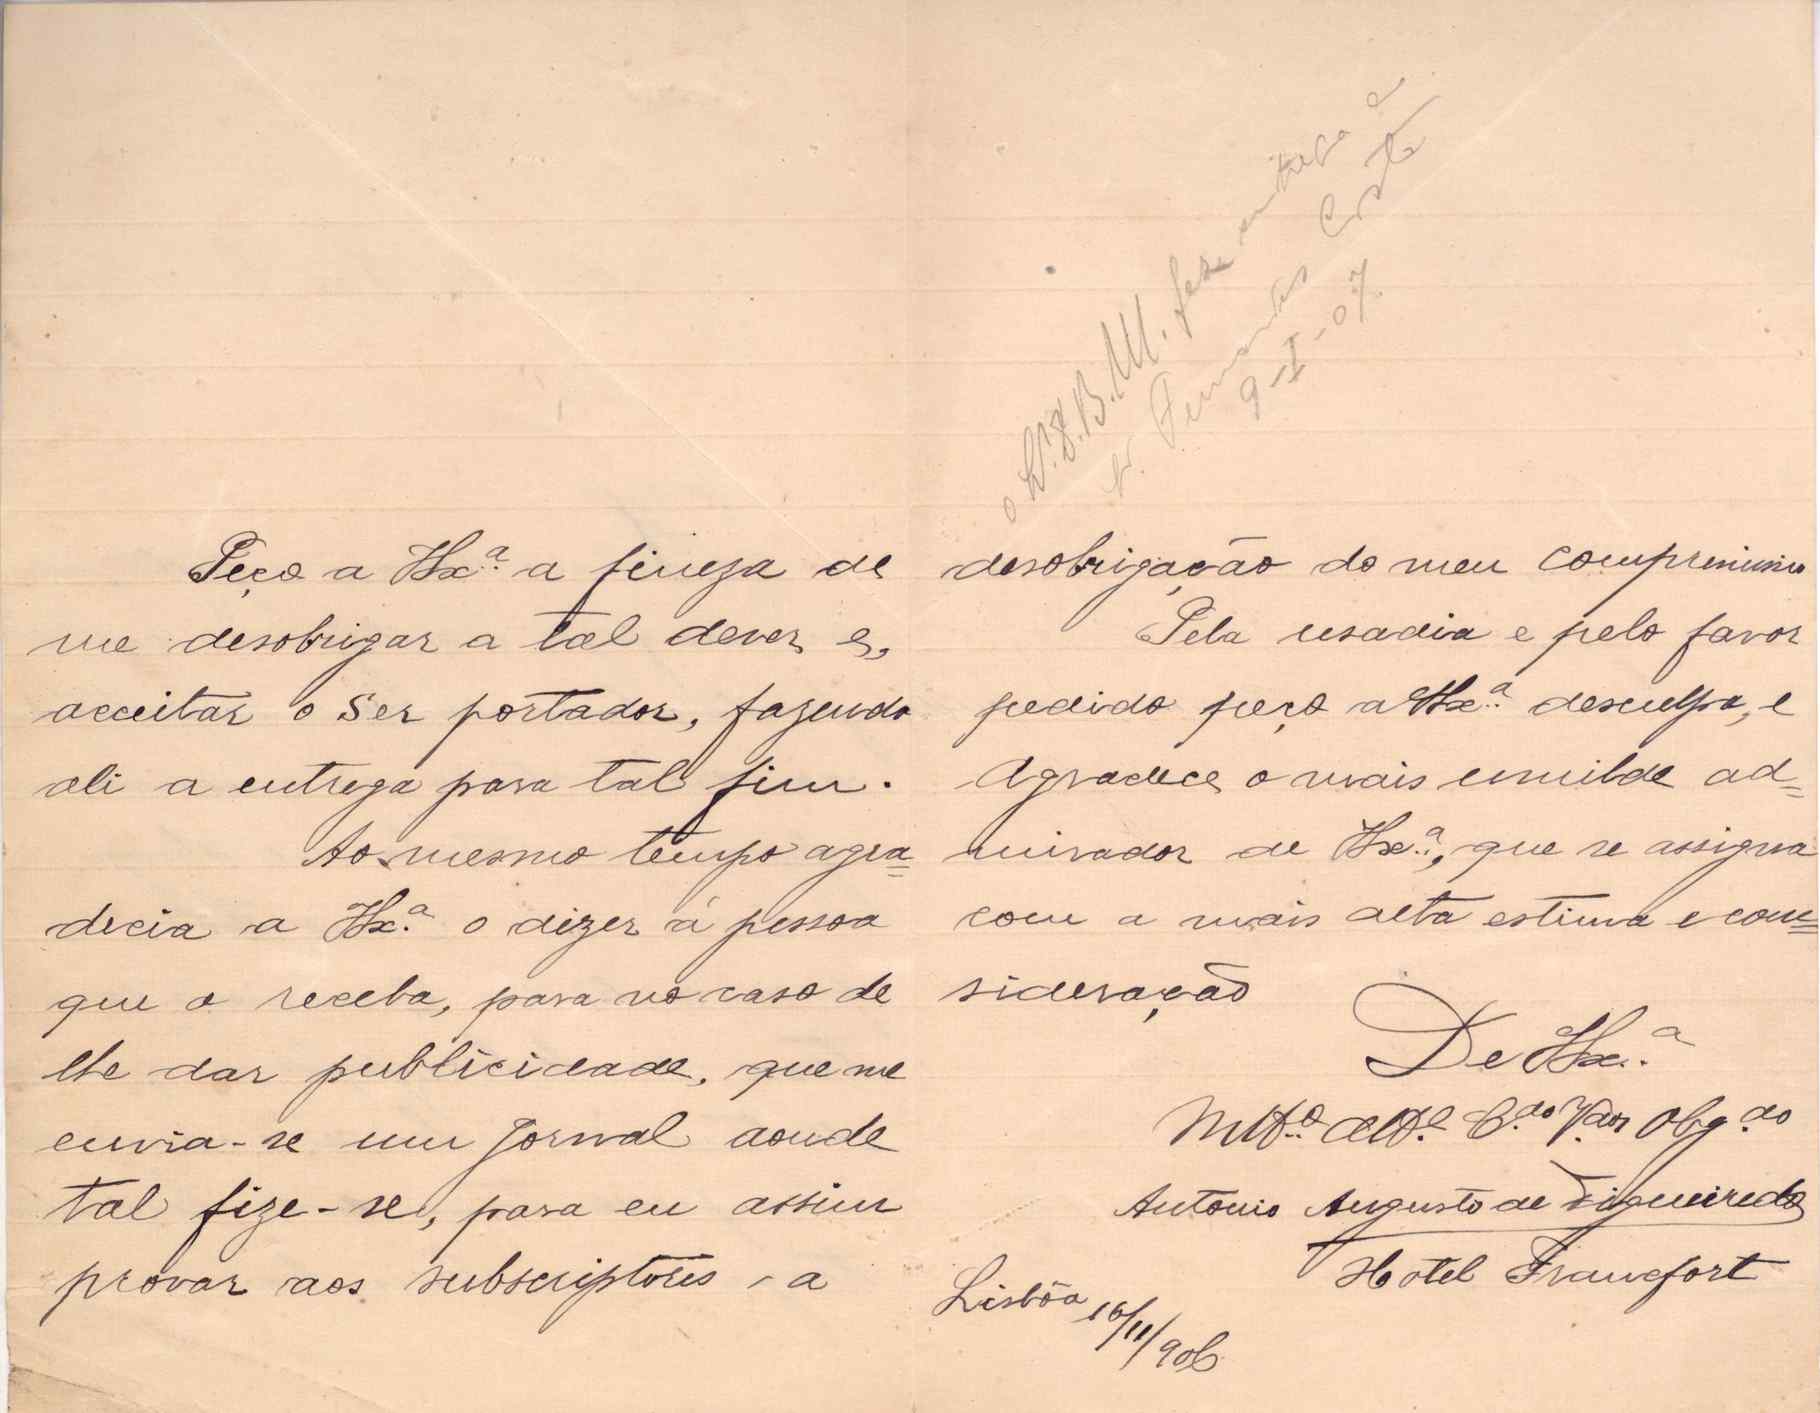 Peço a VExª a fineza de
me desobrigar a tal dever e,
acceitar o ser portador, fazendo
ali a entrega para tal fim.
Ao mesmo tempo agra=
decia a VExª o dizer á pessoa
que o receba, para no caso de
lhe dar publicidade, que me
envia-se um Jornal aonde
tal fize-se, para eu assim
provar aos subscriptores, a
o Dr. B. M. fez entrega a
Sr. Fernandes Costa
9-I-07
desobrigação do meu
Pela usadia e pelo favor
pedido peço a VExª desculpa, e
Agradece o mais umilde ad=
mirador de VExª, que se assigna
com a mais alta estima e con=
sideração
De VExª
Mtº Attº C.do V.dor Obg.do
Antonio Augusto de Figueiredo
Hotel Francfort
Lisbôa 16/11/906